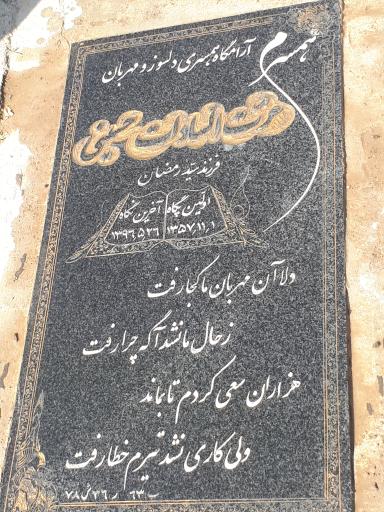 همسرم
آرامگاه همسری دلسوز و مهربان
عزت السادات حسینی
فرزند سید رمضان
اولین پگاه آخرین نگاه
۱۳۵۷٫۱۱٫۱ ۱۳۹۶٫۵٫۲۶
دلا آن مهربان ما کجا رفت
ز حال ما نشد آگه چرا رفت
هزاران سعی کردم تا بماند
ولی کاری نشد تیرم خطا رفت